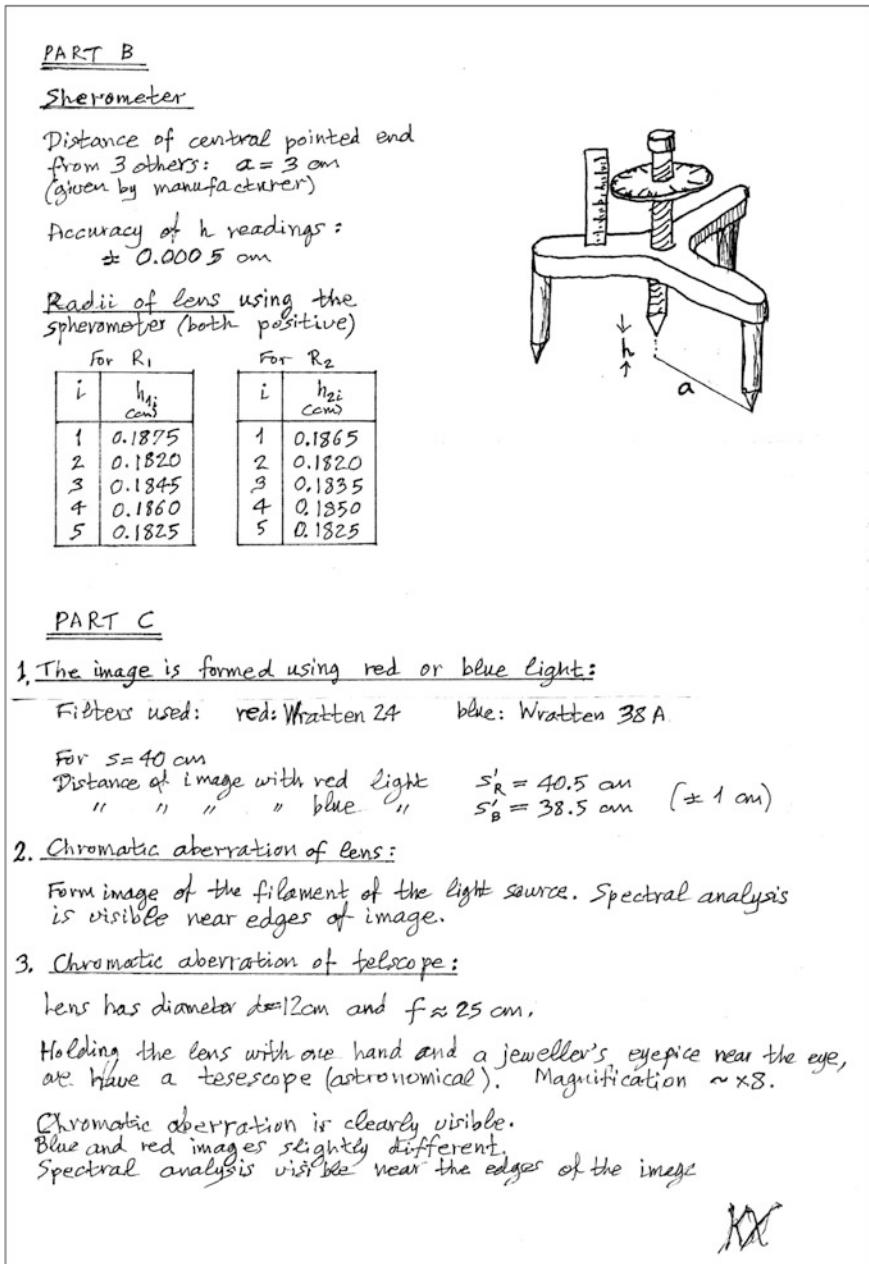 PART B
Sherometer
Distance of central pointed end
from 3 others: a = 3 cm
(given by manufacturer)
Accuracy of h readings:
± 0.0005 cm
Radii of lens using the
spherometer (both positive)
For R₁ For R₂
i h₁ᵢ (cm) i h₂ᵢ (cm)
1 0.1875 1 0.1865
2 0.1820 2 0.1820
3 0.1845 3 0.1835
4 0.1860 4 0.1850
5 0.1825 5 0.1825
h
a
PART C
1. The image is formed using red or blue light:
Filters used: red: Wratten 24 blue: Wratten 38 A
For s = 40 cm
Distance of image with red light s'R = 40.5 cm
" " " " blue " s'B = 38.5 cm (± 1 cm)
2. Chromatic aberration of lens:
Form image of the filament of the light source. Spectral analysis
is visible near edges of image.
3. Chromatic aberration of telscope:
Lens has diameter d=12cm and f ≈ 25 cm.
Holding the lens with one hand and a jeweller's eyepice near the eye,
we have a tesescope (astronomical). Magnification ~ ×8.
Chromatic aberration is clearly visible.
Blue and red images slightly different.
Spectral analysis visible near the edges of the image